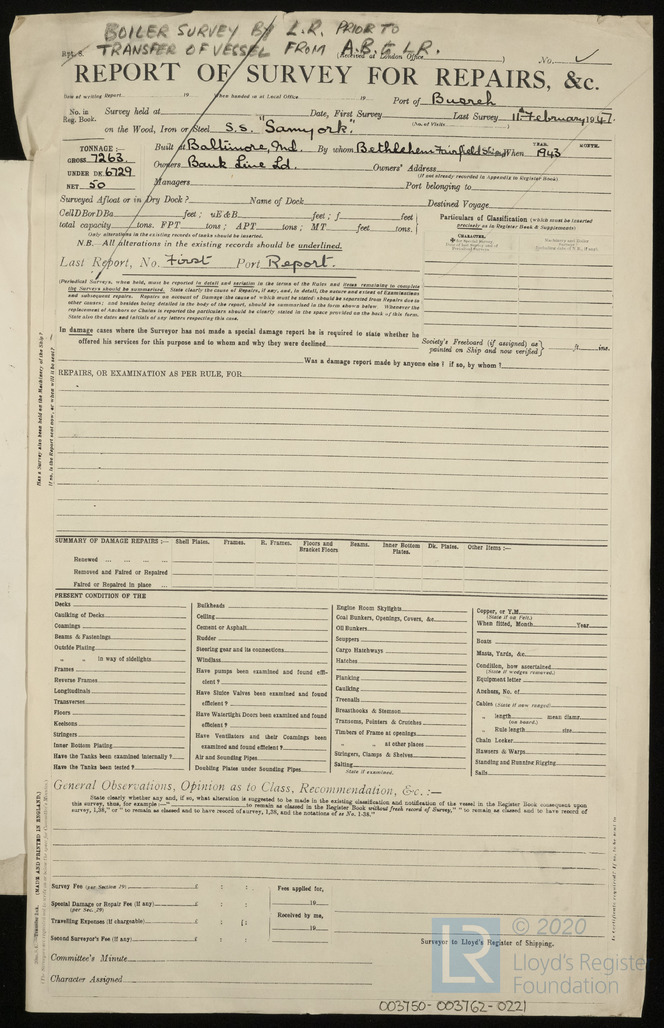 BOILER SURVEY BY L.R. PRIOR TO
TRANSFER OF VESSEL FROM A.B. & L.R.
Rpt. 8. (Received at London Office ) No. ✓
REPORT OF SURVEY FOR REPAIRS, &c.
Date of writing Report 19 When handed in at Local Office 19 Port of
No. in Reg. Book. Survey held at Date, First Survey Last Survey 11th February 1947.
(No. of Visits )
on the Wood, Iron or Steel S.S. "Samyork".
TONNAGE :— Built at Baltimore, Md. By whom Bethlehem Fairfield When YEAR. 1943 MONTH.
GROSS 7263. Owners Bank Line Ld. Owners' Address
UNDER DK 6729 (If not already recorded in Appendix to Register Book)
NET 50 Managers Port belonging to
Surveyed Afloat or in Dry Dock ? Name of Dock Destined Voyage
Cell D B or D Ba feet ; uE & B feet ; f feet
total capacity tons. FPT tons ; APT tons ; MT feet tons.
Only alterations in the existing records of tanks should be inserted.
N.B. All alterations in the existing records should be underlined.
Particulars of Classification (which must be inserted
precisely as in Register Book & Supplements)
CHARACTER.
Last Report, No. First Port Report.
(Periodical Surveys, when held, must be reported in detail and seriatim in the terms of the Rules and items remaining to complete
the Surveys should be summarised. State clearly the cause of Repairs, if any, and, in detail, the nature and extent of Examinations
and subsequent repairs. Repairs on account of Damage (the cause of which must be stated) should be separated from Repairs due to
other causes; and besides being detailed in the body of the report, should be summarised in the form shown below. Whenever the
replacement of Anchors or Chains is reported the particulars should be clearly stated in the space provided on the back of this form.
State also the dates and initials of any letters respecting this case.
In damage cases where the Surveyor has not made a special damage report he is required to state whether he
offered his services for this purpose and to whom and why they were declined
Society's Freeboard (if assigned) as
painted on Ship and now verified } ft. ins.
Was a damage report made by anyone else ? if so, by whom ?
REPAIRS, OR EXAMINATION AS PER RULE, FOR
Has a Survey also been held on the Machinery of the Ship ?
If so, is the Report sent now, or when will it be sent ?
SUMMARY OF DAMAGE REPAIRS :— Shell Plates. Frames. R. Frames. Floors and Bracket Floors Beams. Inner Bottom Plates. Dk. Plates. Other Items :—
Renewed
Removed and Faired or Repaired
Faired or Repaired in place
PRESENT CONDITION OF THE
Decks
Caulking of Decks
Coamings
Beams & Fastenings
Outside Plating
" " in way of sidelights
Frames
Reverse Frames
Longitudinals
Transverses
Floors
Keelsons
Stringers
Inner Bottom Plating
Have the Tanks been examined internally ?
Have the Tanks been tested ?
Bulkheads
Ceiling
Cement or Asphalt
Rudder
Steering gear and its connections
Windlass
Have pumps been examined and found effi-
cient ?
Have Sluice Valves been examined and found
efficient ?
Have Watertight Doors been examined and found
efficient ?
Have Ventilators and their Coamings been
examined and found efficient ?
Air and Sounding Pipes
Doubling Plates under Sounding Pipes
Engine Room Skylights
Coal Bunkers, Openings, Covers, &c.
Oil Bunkers
Scuppers
Cargo Hatchways
Hatches
Planking
Caulking
Treenails
Breasthooks & Stemson
Transoms, Pointers & Crutches
Timbers of Frame at openings
" " at other places
Stringers, Clamps & Shelves
Salting
State if examined.
Copper, or Y.M.
(State if on Felt.)
When fitted, Month Year
Boats
Masts, Yards, &c.
Condition, how ascertained
(State if wedges removed.)
Equipment letter
Anchors, No. of
Cables (State if now ranged)
" length mean diamr.
(on board.)
" Rule length size
Chain Locker
Hawsers & Warps
Standing and Running Rigging
Sails
General Observations, Opinion as to Class, Recommendation, &c. :—
State clearly whether any and, if so, what alteration is suggested to be made in the existing classification and notification of the vessel in the Register Book consequent upon
this survey, thus, for example :—" to remain as classed in the Register Book without fresh record of Survey," "to remain as classed and to have record of
survey, 1,38," or "to remain as classed and to have record of survey, 1,38, and the notations of ss No. 1-38."
(MADE AND PRINTED IN ENGLAND.)
Survey Fee (per Section 29) £ : :
Special Damage or Repair Fee (if any) £ : :
(per Sec. 29)
Travelling Expenses (if chargeable) £ : :
Second Surveyor's Fee (if any) £ : :
Fees applied for,
19
Received by me,
19
Surveyor to Lloyd's Register of Shipping.
Committee's Minute
Character Assigned
LR
© 2020
Lloyd's Register
Foundation
003750-003762-0221